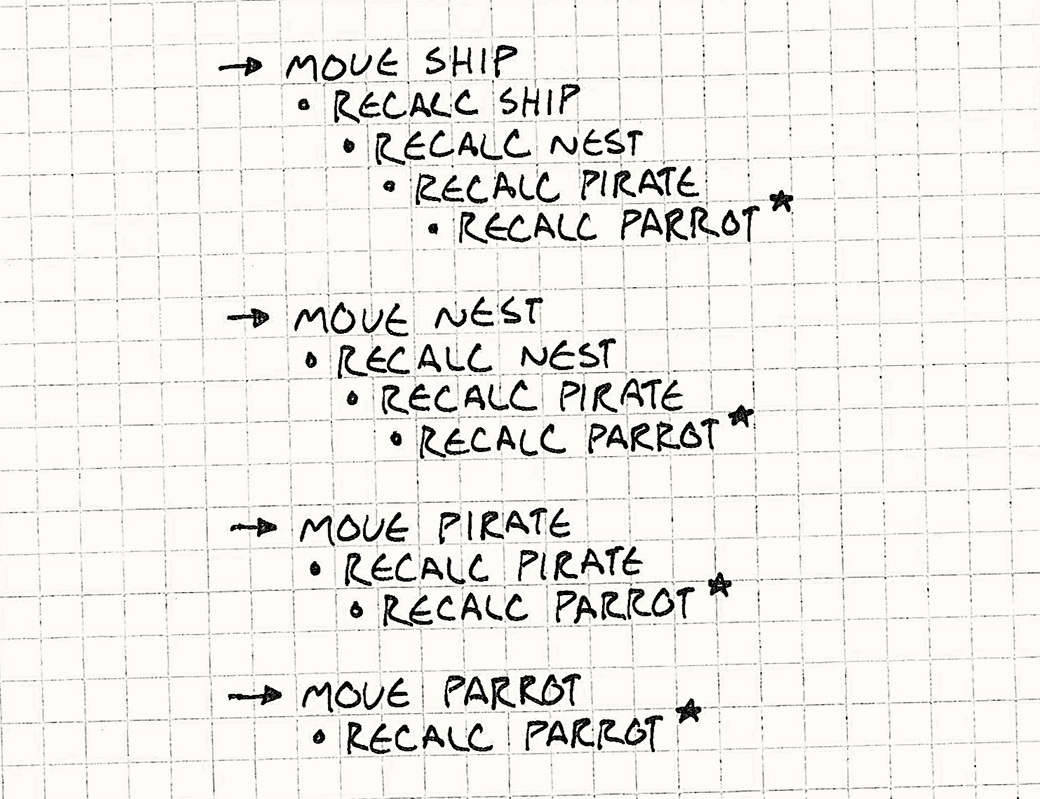 → MOVE SHIP
• RECALC SHIP
• RECALC NEST
• RECALC PIRATE
• RECALC PARROT ★
→ MOVE NEST
• RECALC NEST
• RECALC PIRATE
• RECALC PARROT ★
→ MOVE PIRATE
• RECALC PIRATE
• RECALC PARROT ★
→ MOVE PARROT
• RECALC PARROT ★